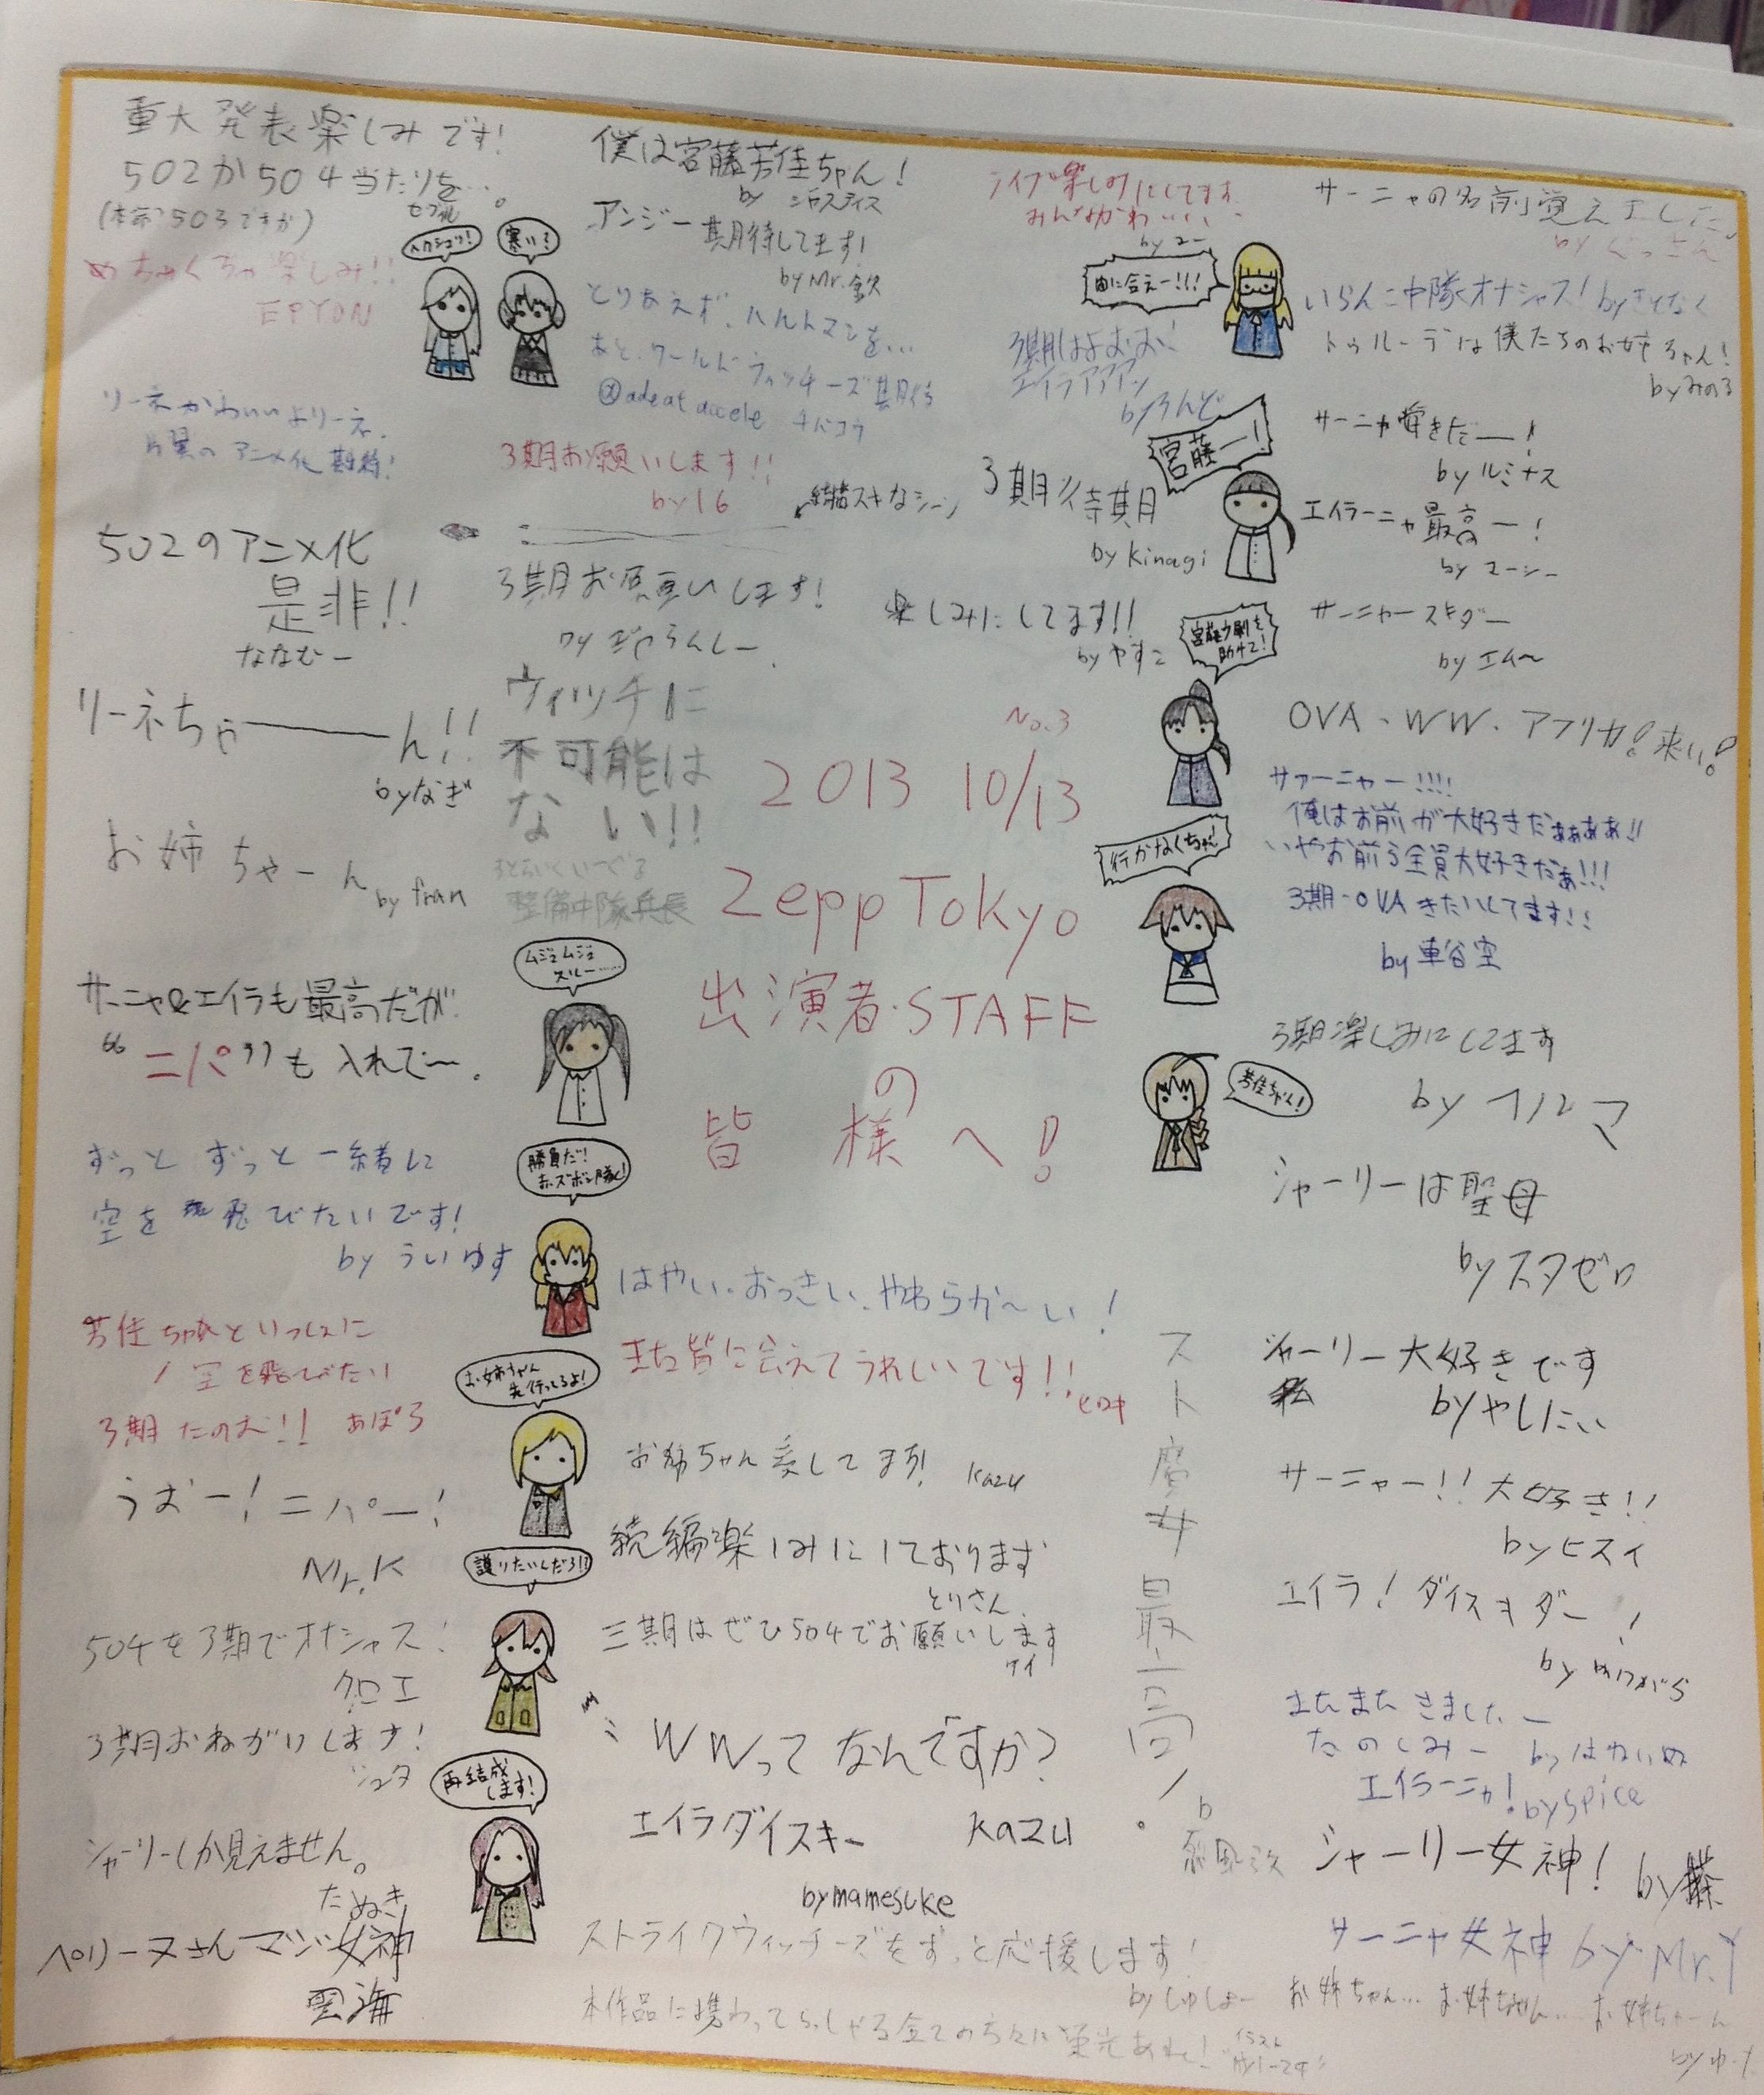 重大発表楽しみです!
502か504当たりを…。
めちゃくちゃ楽しみ!!
EPYON
ヘクション!
寒い?
リーネかわいいよリーネ、
アニメ化期待!
502のアニメ化
是非!!
ななむー
リーネちゃーーーん!!
byなぎ
お姉ちゃーん
by fran
サーニャ&エイラも最高だが
“ニパ”も入れて〜.
ずっと ずっと 一緒に
空を 飛びたいです!
by ういゆす
芳佳ちゃんといっしょに
空を飛びたい
3期 たのむ!! あぽろ
うおー! ニパー!
Mr.K
504を3期でオナシャス!
クロエ
3期おねがいします!
シャーリーしか見えません。
たぬき
ペリーヌさんマジ女神
雲海
僕は宮藤芳佳ちゃん!
by ジャスティス
アンジー期待してます!
by Mr.
とりあえず、ハルトマンを…
あと、ワールドウィッチーズ期待
3期お願いします!!
by16
スキなシーン
3期お願いします!
ウィッチに
不可能は
ない!!
整備中隊兵長
No.3
2013 10/13
Zepp Tokyo
出演者・STAFF
の
皆様へ!
ムジュムジュ
スルー……
勝負だ!
赤ズボン隊!
はやい、おっきい、やわらか〜い!
また皆に会えてうれしいです!!
ヒロキ
お姉ちゃん
先行ってるよ!
お姉ちゃん愛してます! kazu
続編楽しみにしております
とりさん
護りたいんだろ!!
三期はぜひ504でお願いします
ケイ
WWってなんですか?
再結成
します!
エイラダイスキー kazu
by mamesuke
ストライクウィッチーズをずっと応援します!
by しゅしょー
本作品に携わってらっしゃる全ての方々に栄光あれ!
イラスト
ライブ楽しみにしてます
by ユー
間に合えー!!!
3期はよおお!
3期待期
by kinagi
宮藤ー!
楽しみにしてます!!
by やすこ
助けて!
行かなくちゃ!
芳佳ちゃん!
スト魔女最高ノ
サーニャの名前覚えました
by ぐっさん
いらん子中隊オナシャス!
トゥルーデは僕たちのお姉ちゃん!
byみのる
サーニャ好きだー!
by ルミナス
エイラーニャ最高ー!
by ユーシー
サーニャースキダー
by エム〜
OVA・WW・アフリカ!来い!
サァーニャー!!!!
俺はお前が大好きだぁぁぁぁ!!
いやお前ら全員大好きだぁ!!!
3期・OVAきたいしてます!!
by 車谷空
3期楽しみにしてます
by ヘルマ
シャーリーは聖母
by スタゼロ
シャーリー大好きです
by やしたい
サーニャー!! 大好き!!
by ヒスイ
エイラ! ダイスキダー!
またまたきましたー
たのしみー
エイラーニャ!
by spice
シャーリー女神! by 藤
サーニャ女神 by Mr.Y
お姉ちゃん… お姉ちゃん… お姉ちゃーん